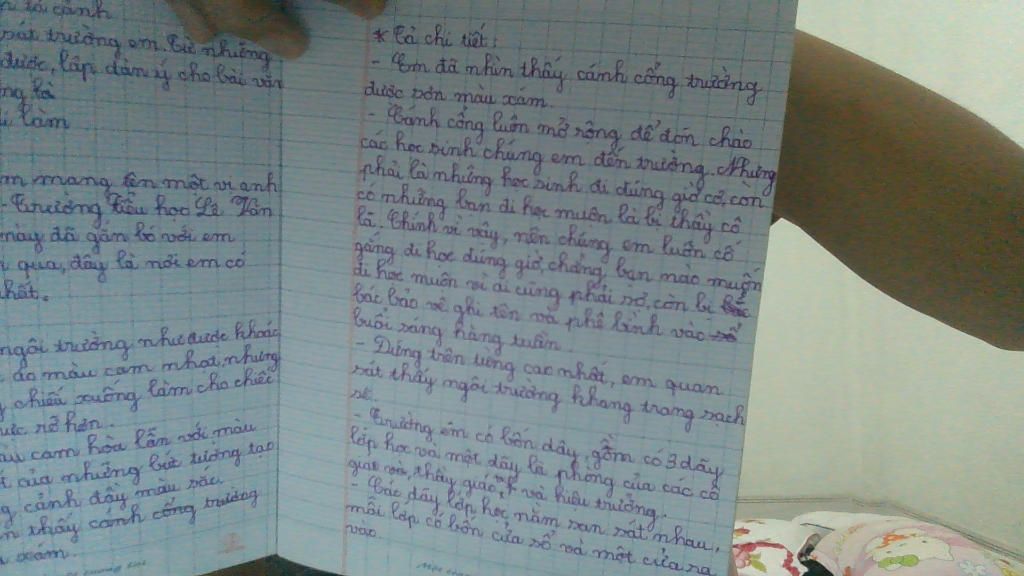 n tả cảnh
sát trường em. Từ những
được, lập dàn ý cho bài văn
ng là
i làm
m mang tên một vị anh
- Trường Tiểu học Lê Văn
này đã gắn bó với em
qua, đây là nơi em có
nhất.
ngôi trường như được khoác
áo màu cam nhạt, nhưng
chiếu xuống làm cho chiếc
rực rỡ hơn.
àu cam hòa lẫn với màu
của những bức tường tạo
g cảnh đầy màu sắc.
n thấy cánh cổng trường
xám.
* Tả chi tiết:
- Em đã nhìn thấy cánh cổng trường
được sơn màu xám.
- Cánh cổng luôn mở rộng để đón chào
các học sinh chúng em đến trường. Nhưng
phải là những học sinh đi đúng giờ cơ, còn
có những bạn đi học muộn là bị thầy cô
la. Chính vì vậy, nên chúng em luôn cố
gắng đi học đúng giờ, chẳng bạn nào muốn
đi học muộn vì ai cũng phải sợ, còn bị
bác bảo vệ ghi tên và phê bình vào
buổi sáng hàng tuần.
- Đứng trên tầng cao nhất, em quan
sát thấy ngôi trường khang trang sạch
sẽ.
- Trường em có bốn dãy, gồm có 3 dãy
lớp học và một dãy là phòng của các cô
giáo và, thầy giáo, và hiệu trưởng.
- Các dãy lớp học nằm san sát nhau,
mỗi lớp có bốn cửa sổ và một cửa ra
vào.